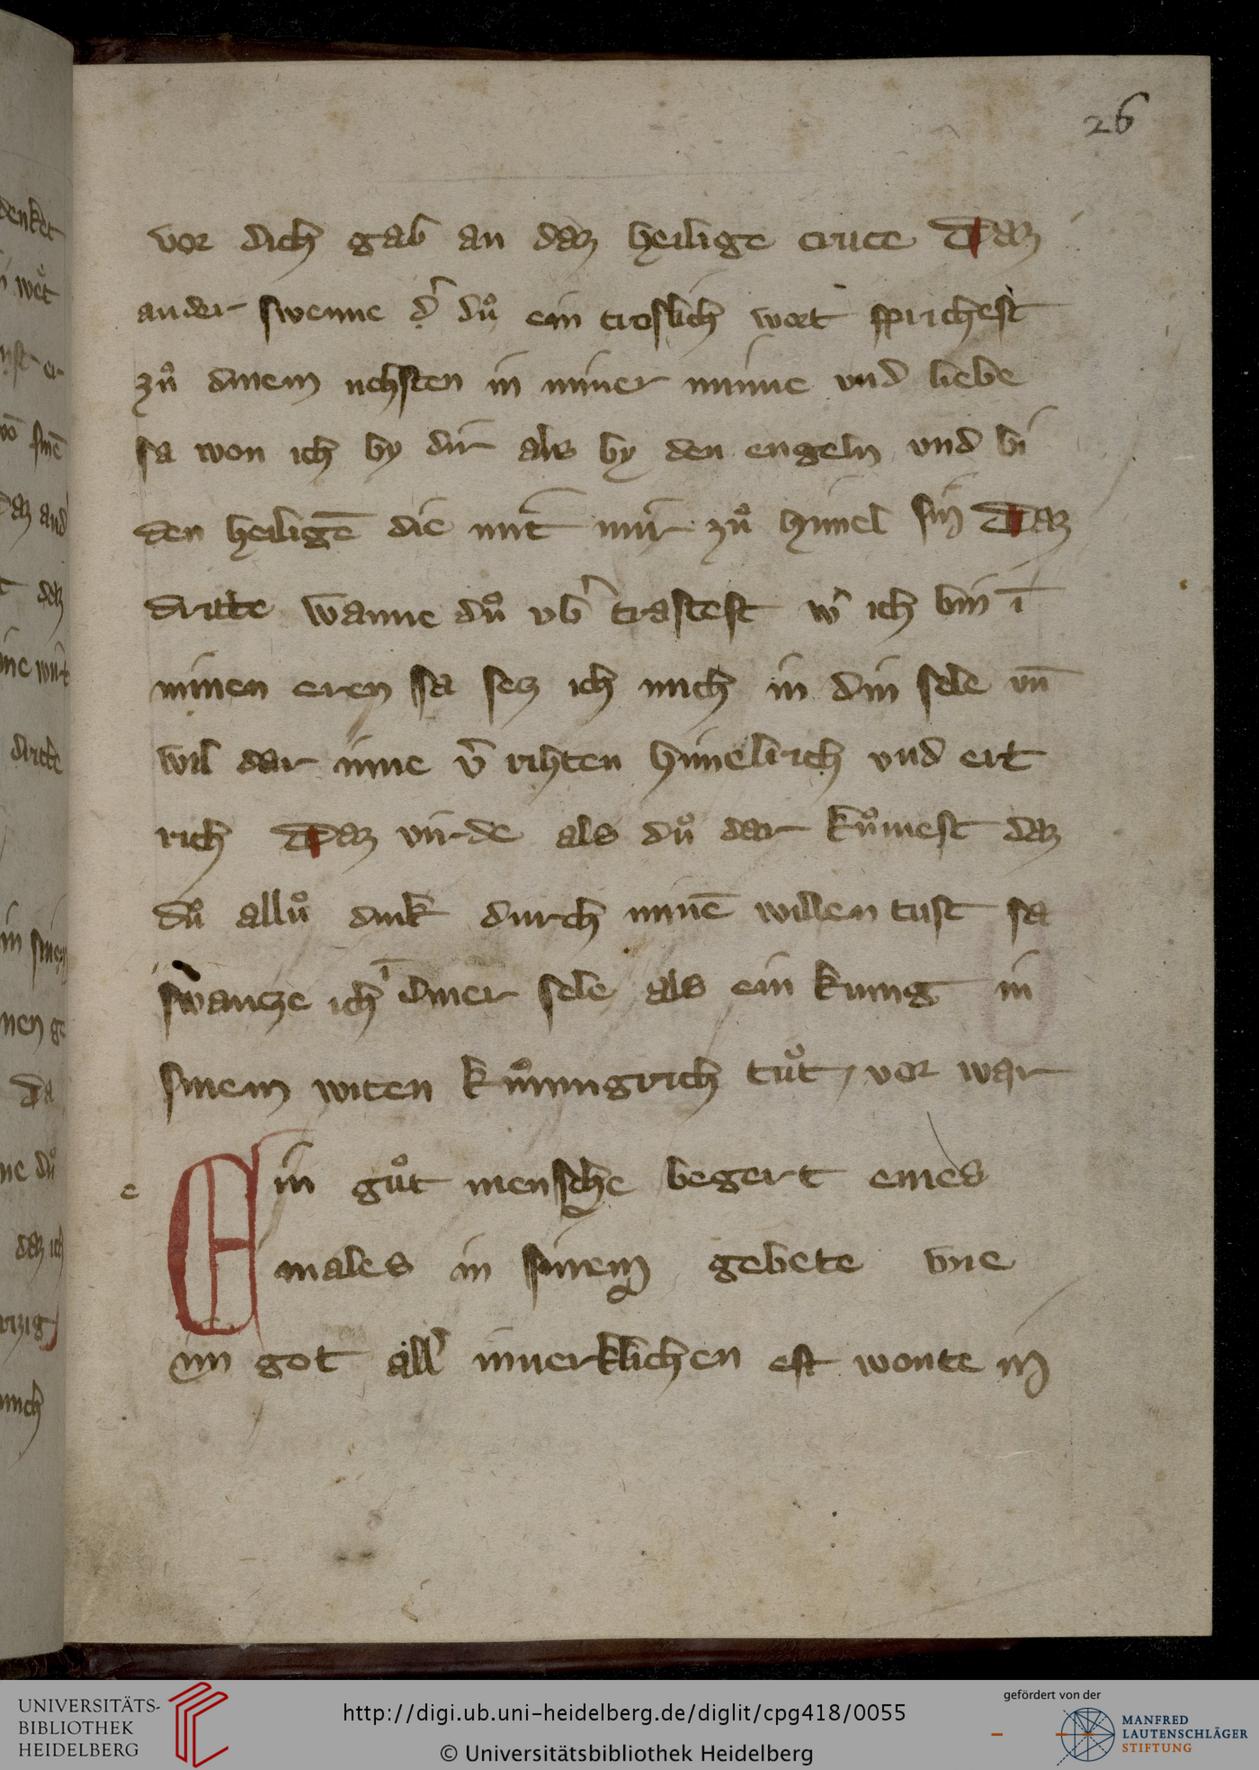 26
vor dich gab an daz heilige cruce Daz
ander swenne d' dů ein troslich wort sprichest
zů dinem nehsten in miner minne vnd liebe
sa won ich by dir als by den engeln vnd bi
den heiligē die mit mir zů himel sin Daz
dritte wanne dů vb' trastest w' ich bin ī
minen eren sa sez ich mich in din sele vn̄
wil dar inne v' rihten himelrich vnd ert
rich Daz virde als dů dar kůmest daz
dů allů dink durch minē willen tust sa
swancze ich ī diner sele als ein kunig in
sinem witen kůnungrich tůt, vor war
e
Ein gůt mensche begert eines
males in sinem gebete vne
im got all' innerklichen est wonte in
UNIVERSITÄTS-
BIBLIOTHEK
HEIDELBERG
http://digi.ub.uni-heidelberg.de/diglit/cpg418/0055
© Universitätsbibliothek Heidelberg
gefördert von der
MANFRED
LAUTENSCHLÄGER
STIFTUNG